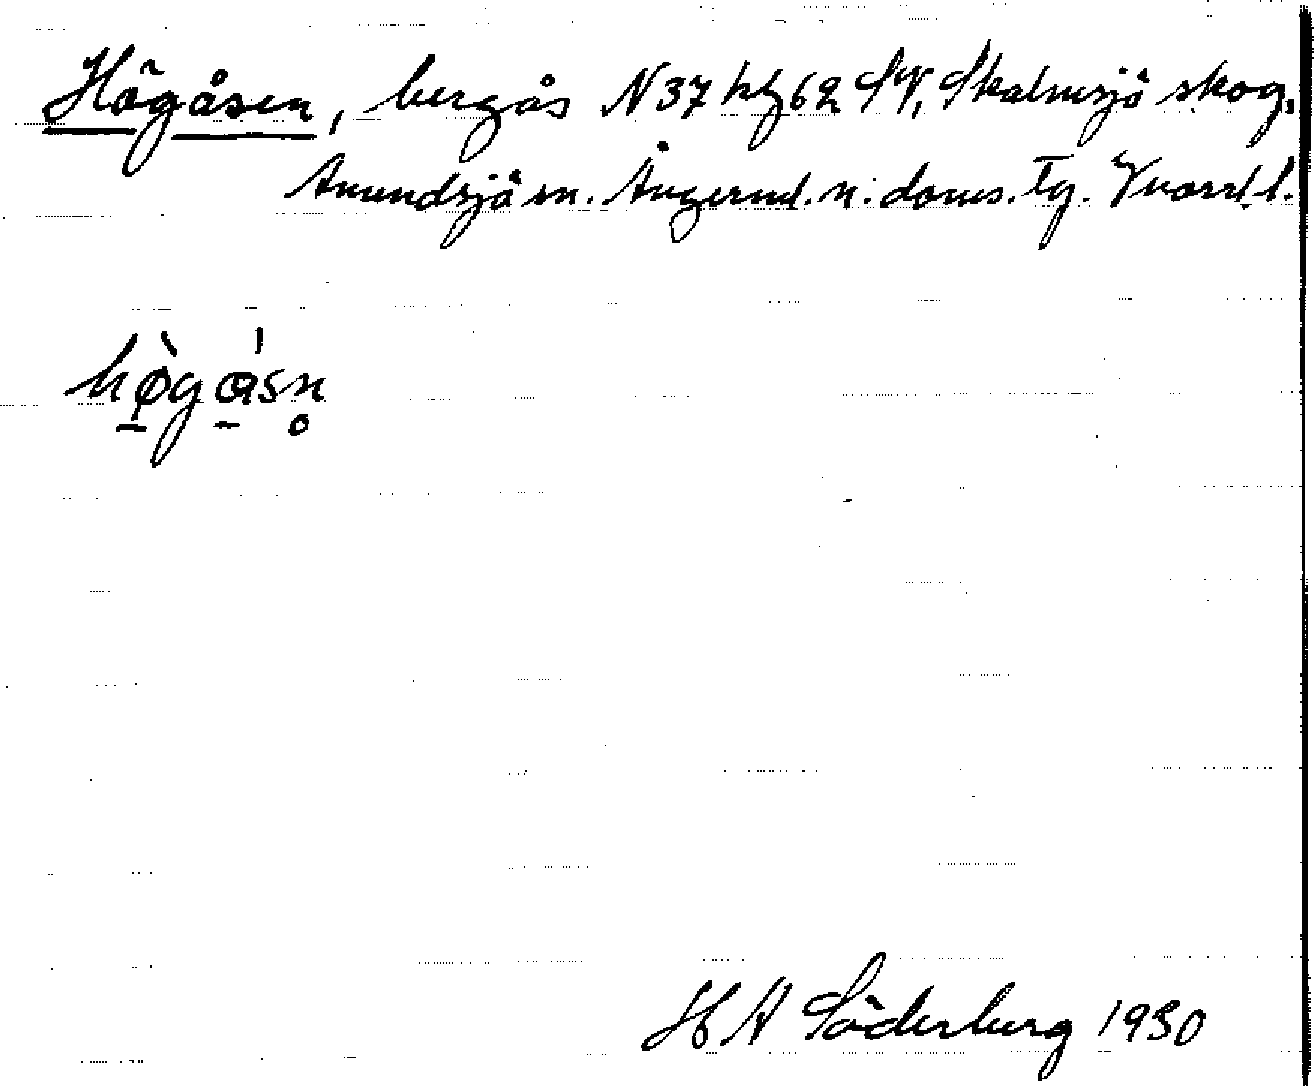 Högåsen, bergås N 37 hz 62 SV, Skalmsjö skog,
Anundsjö sn. Ångerml. n. doms. Tg. Vnorrl. l.
hø̀gåsn̥
H A Söderberg 1930